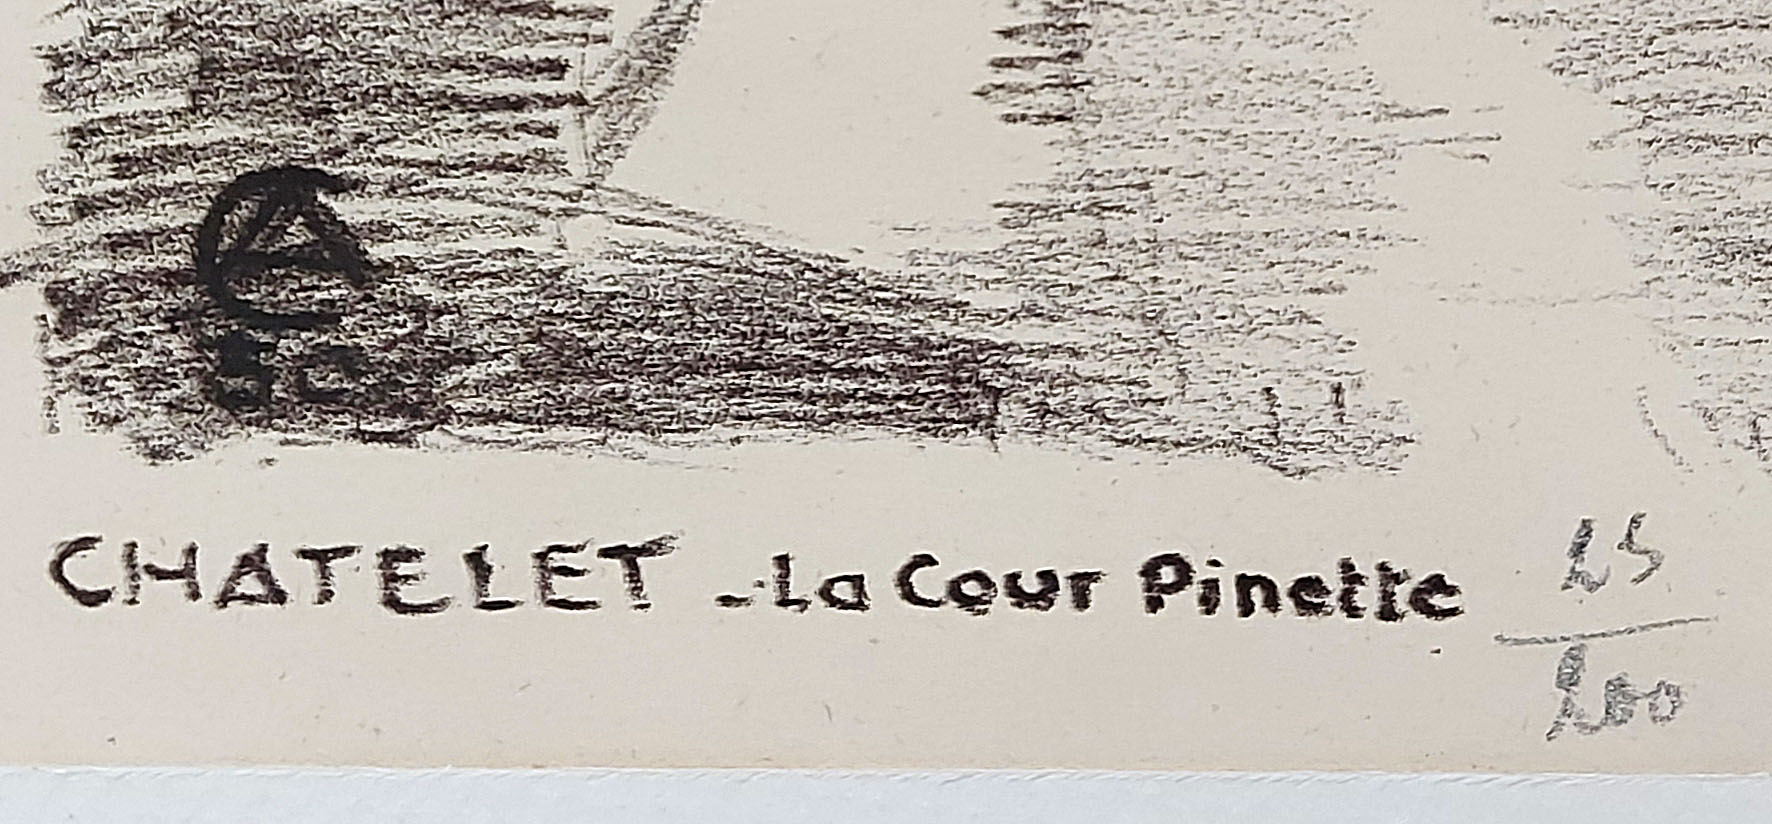 CA
CHATELET - La Cour Pinette
25
200